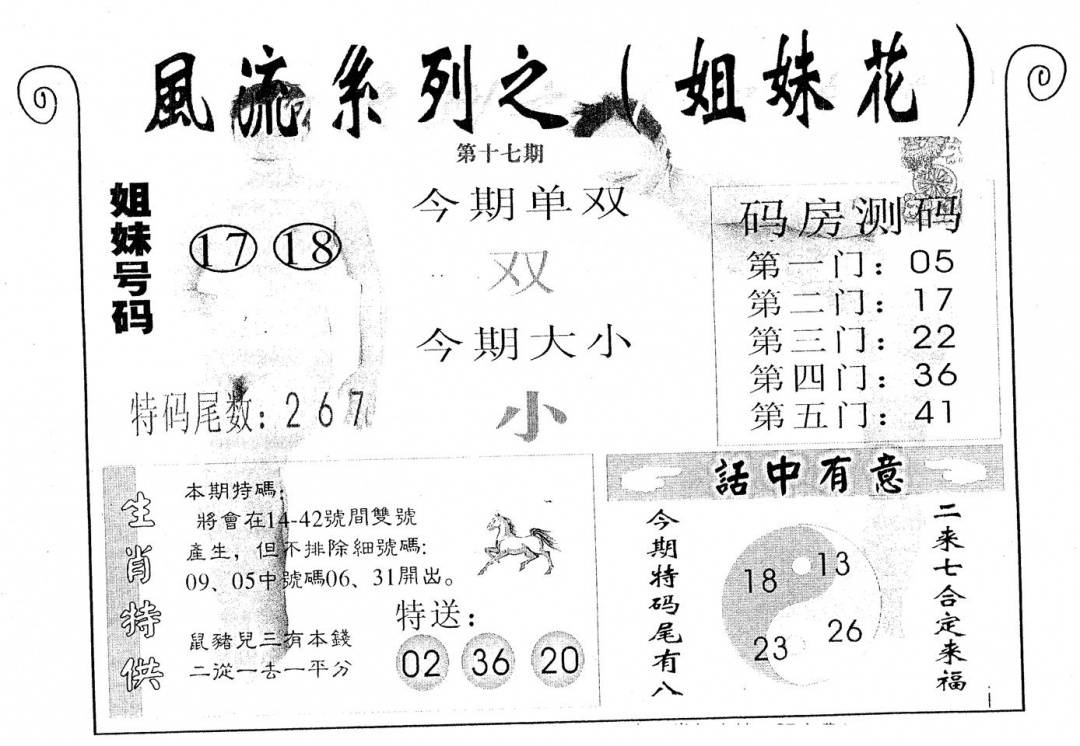 風流系列之（姐妹花）
第十七期
姐妹号码
17 18
特码尾数：267
今期单双
双
今期大小
小
码房测码
第一门：05
第二门：17
第三门：22
第四门：36
第五门：41
生肖特供
本期特碼：
將會在14-42號間雙號
產生，但不排除細號碼：
09、05中號碼06、31開出。
鼠豬兒三有本錢
二從一去一平分
特送：
02 36 20
話中有意
今期特码尾有八
18 13
23 26
二来七合定来福